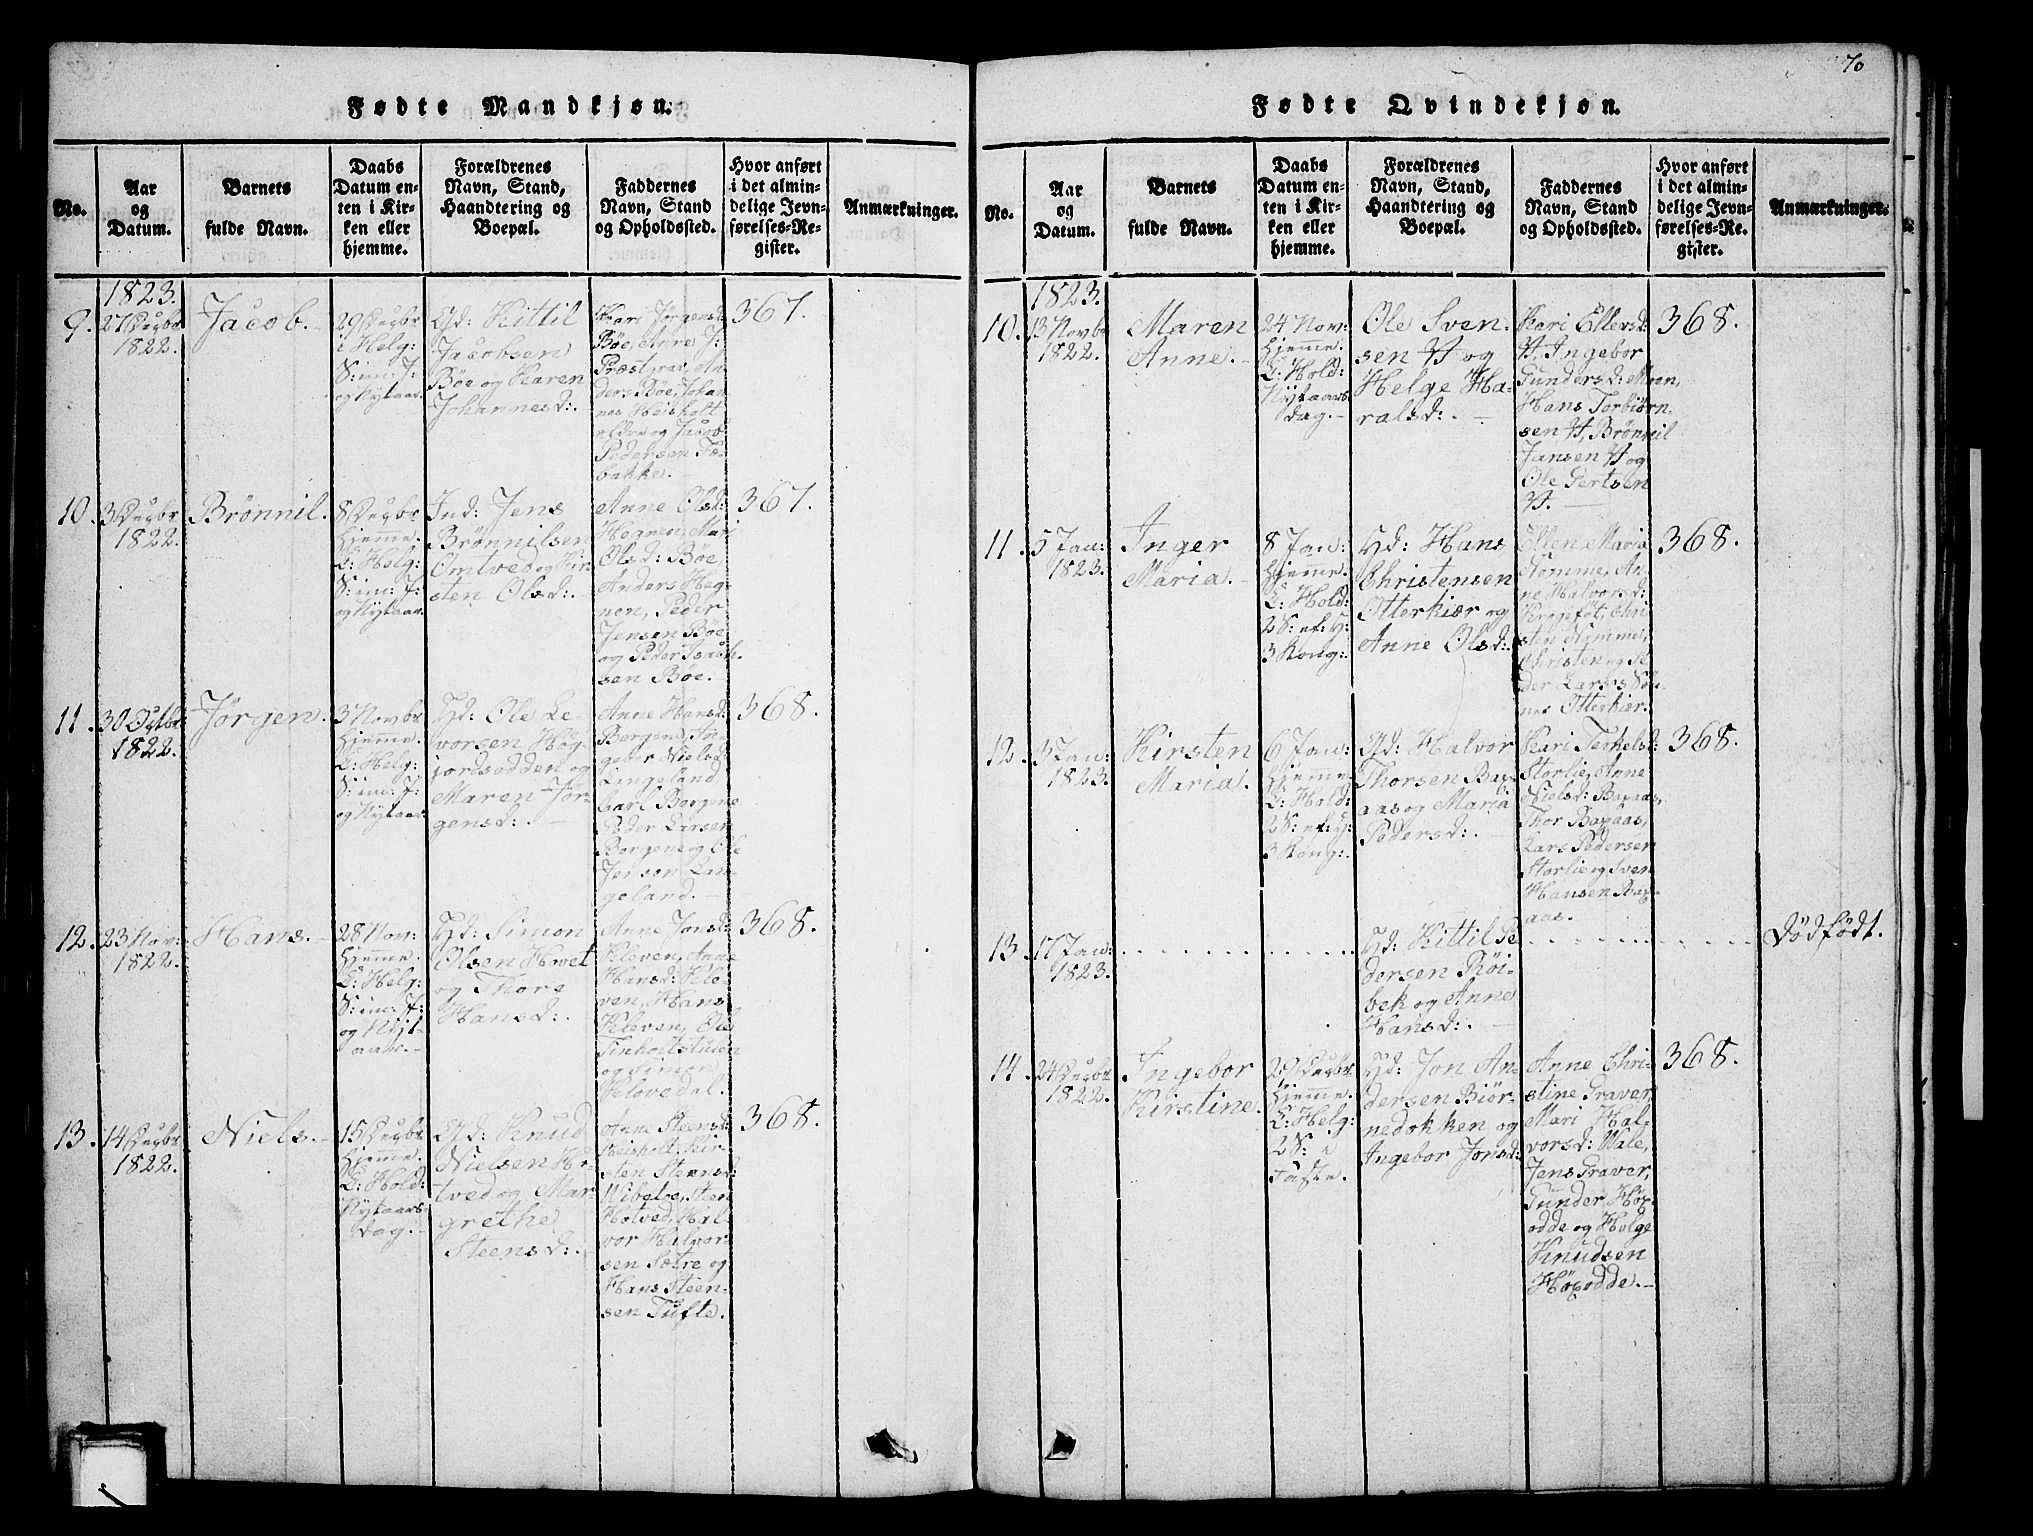 70
Fødte Mandkjøn.
No.
Aar
og
Datum.
Barnets
fulde Navn.
Daabs
Datum en-
ten i Kir-
ken eller
hjemme.
Forældrenes
Navn, Stand,
Haandtering og
Boepæl.
Faddernes
Navn, Stand
og Opholdssted.
Hvor anført
i det almin-
delige Jevn-
førelses-Re-
gister.
Anmærkninger.
1823.
9.
27 Decbr
1822.
Jacob.
29 Decbr
i Helg:
S: im: J:
og Nytaar
Gd: Kittil
Jacobsen
Bøe og Karen
Johannesd:
Kari Jørgensd:
Bøe, Anne J:
Præstgrav, An
ders Bøe, Johan
nes Heisholt
eldre og Jacob
Pedersen
bakke.
367.
10.
3 Decbr
1822.
Brønnil.
8 Decbr
hjemme.
Ind: Jens
Brønnilsen
Omtved og Kir-
sten Olsd:
S: im: J:
og Nytaar.
Anne Olsd:
Hegnen, Mari
Olsd: Bøe,
Anders Heg-
nen, Peder
Jensen Bøe
og Peder Isach
sen Bøe.
367.
11.
30 Octbr
1822.
Jørgen.
3 Novbr
hjemme.
S: im: J:
og Nytaar.
Hd: Ole Le-
vorsen Høg-
jordsodden og
Maren Jør-
gensd:
Anne Hansd:
Borgene, In-
gebor Nielsd:
Langeland
Carl Borgene
Peder Larsen
Borgene og Ole
Jensen Lan-
geland.
368.
12.
23 Nov:
1822.
Hans.
28 Nov:
hjemme.
S: im: J:
og Nyt-
aar.
Hd: Simon
Olsen Hvet
og Thore
Hansd:
Anne Jonsd:
Kleven, Anne
Hansd: Kle-
ven, Hans
Kleven, Ole
Tinholtstulen
og Simon
368.
13.
14 Decbr
1822.
Niels.
15 Decbr
hjemme.
Nytaars
dag.
Gd: Knud
Nielsen Ho-
tved og Mar-
grethe
Steensd:
Anne Steensd:
Heisholt, Kir-
sten Steensd:
Vibetoe, Steen
Hotved, Hal-
vor Halvor-
sen Sætre og
Hans Steen-
sen Tufte.
368.
Fødte Qvindekjøn.
No.
Aar
og
Datum.
Barnets
fulde Navn.
Daabs
Datum en-
ten i Kir-
ken eller
hjemme.
Forældrenes
Navn, Stand,
Haandtering og
Boepæl.
Faddernes
Navn, Stand
og Opholdssted.
Hvor anført
i det almin-
delige Jevn-
førelses-Re-
gister.
Anmærkninger.
1823.
10.
13 Novbr
1822.
Maren
Anne.
24 Nov:
hjemme.
Nytaars
dag.
Ole Sven-
sen H og
Helge Ha-
ralsd:
Kari Ellevsd:
H, Ingebor
Gundersd: Moen,
Hans Torbiørn-
sen H, Brønnil
Jansen H og
Ole Gertsen
H.
368.
11.
5 Jan:
1823.
Inger
Maria.
8 Jan:
hjemme.
2 S: ef: H:
3 Kong:
Hd: Hans
Christensen
Otterkiær og
Anne Olsd:
Ellen Maria
Stomme, An-
ne Halvorsd:
Kragefot, Chri-
sten Stomme,
Christen og Pe-
der Lars Søn-
ner Otterkiær.
368.
12.
3 Jan:
1823.
Kirsten
Maria.
6 Jan:
hjemme
2 S: ef: H:
3 Kong:
Gd: Halvor
Thorsen Bax-
aas og Maria
Pedersd:
Kari Terkelsd:
Storlie, Anne
Nielsd: Baxaas,
Thor Baxaas,
Lars Pedersen
Storlie og Sven
Hansen Bax-
aas.
368.
13.
17 Jan:
1823.
Hd: Kittil Pe-
dersen Røi-
bek og Anne
Hansd:
Dödfödt.
14.
24 Decbr
1822.
Ingebor
Kirstine.
29 Decbr
hjemme.
2 S: i
Faste.
Hd: Jon An-
dersen Biør-
nedokken og
Ingebor Jonsd:
Anne Chri-
stine Graver,
Mari Hal-
vorsd: Wale,
Jens Graver,
Gunder Høx-
odde og Helge
Knudsen
Høxodde.
368.